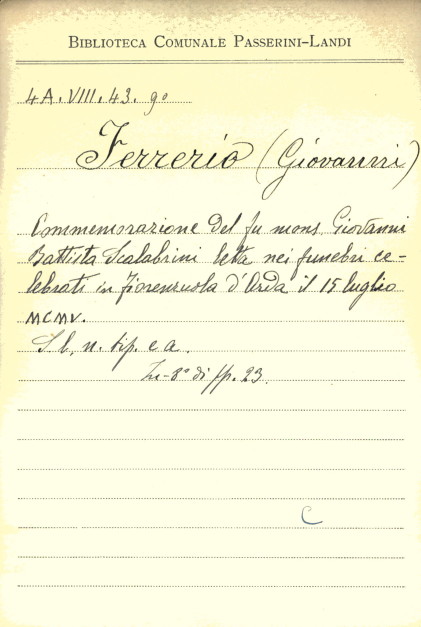 BIBLIOTECA COMUNALE PASSERINI-LANDI
4A. VIII. 43. 9º
Ferrerio (Giovanni)
Commemorazione del fu mons. Giovanni
Battista Scalabrini letta nei funebri ce-
lebrati in Fiorenzuola d'Arda il 15 luglio
MCMV.
S. l., n. tip. e a.
In-8º di pp. 23.
C